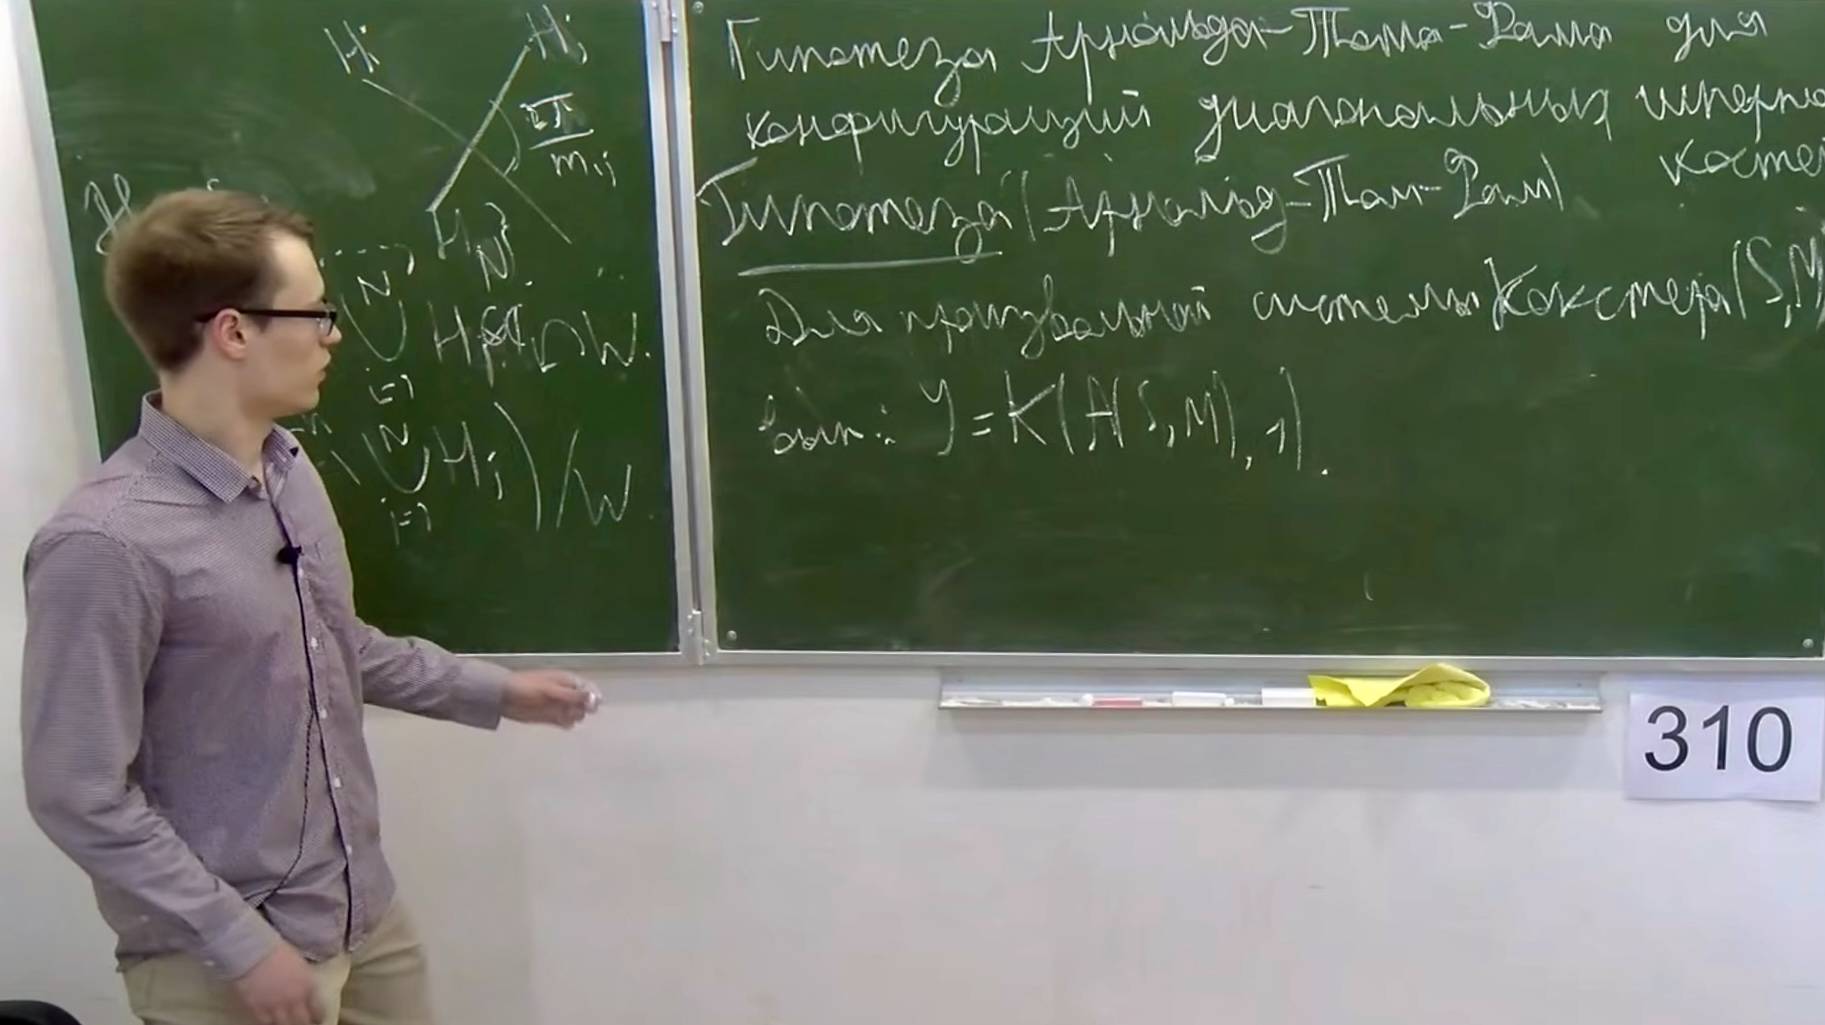 Hi
Hj
π
mij
N
⋃ Hi ∩ W.
i=1
N
⋃ Hi) / W
i=1
Гипотеза Арнольда-Тома-Фама для
конфигураций диагональных
Гипотеза (Арнольд-Том-Фам)
Для произвольной системы Кокстера (S,M)
вып: Y = K(A(S,M), 1).
310